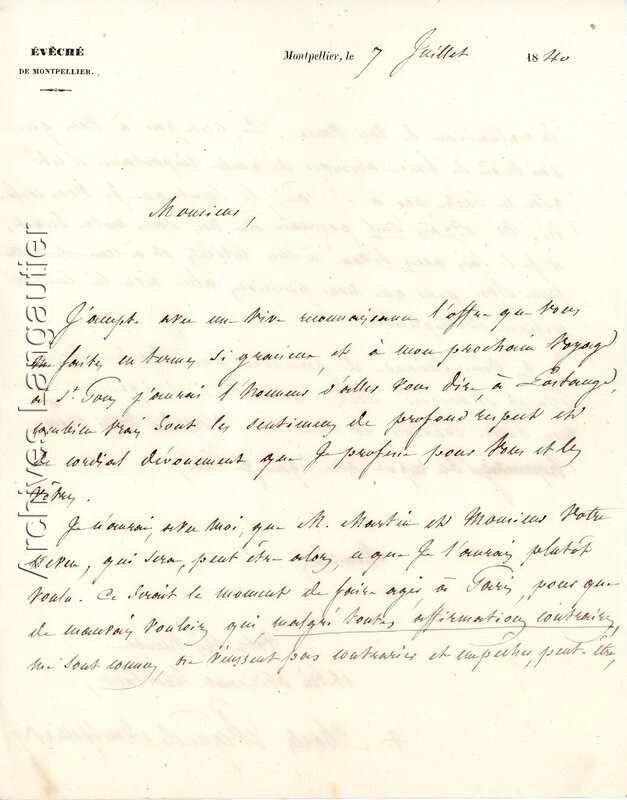 ÉVÊCHÉ
DE MONTPELLIER.
Montpellier, le 7 Juillet 1840
Monsieur,
J'accepte avec une vive reconnaissance l'offre que vous
faites en termes si gracieux, et à mon prochain voyage
à St Pons j'aurai l'honneur d'aller vous dire, à Lastange,
combien vrais sont les sentimens de profond respect et
de cordial dévouement que je professe pour vous et les
vôtres.
Je n'aurai, avec moi, que M. Martin et Monsieur votre
neveu, qui sera, peut être alors, ce que je l'aurais plutôt
voulu. Ce serait le moment de faire agir à Paris, pour que
de mauvais vouloirs qui malgré toutes affirmations contraires,
me sont connus, ne vinssent pas contrarier et empêcher, peut-être,
Archives Langautier